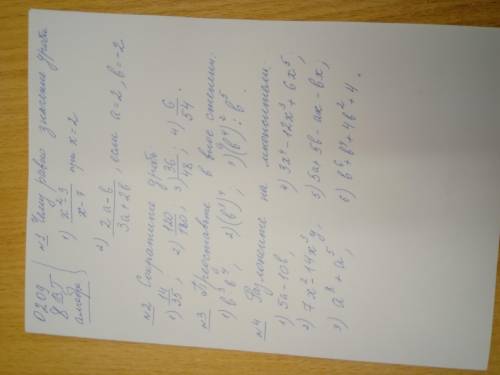 0209
8 
алгебра
№1 Чему равно значение дроби
1) x² - 3 / x - 7 при x = 2
2) 2a - b / 3a + 2b, если a = 2, b = -2
№2 Сократите дробь
1) 14/35; 2) 120/180; 3) 36/48; 4) 6/54.
№3 Представьте в виде степени:
1) b³ b⁹; 2) (b³)⁹; 3) (b⁴)² : b⁵
№4 Разложите на множители
1) 5a - 10b,
2) 7x² - 14x³y,
3) a⁸ + a⁵,
2) 3x² - 12x³ + 6x⁵;
5) 5a + 5b - ax - bx,
6) b⁶ + b⁴ + 4b² + 4.